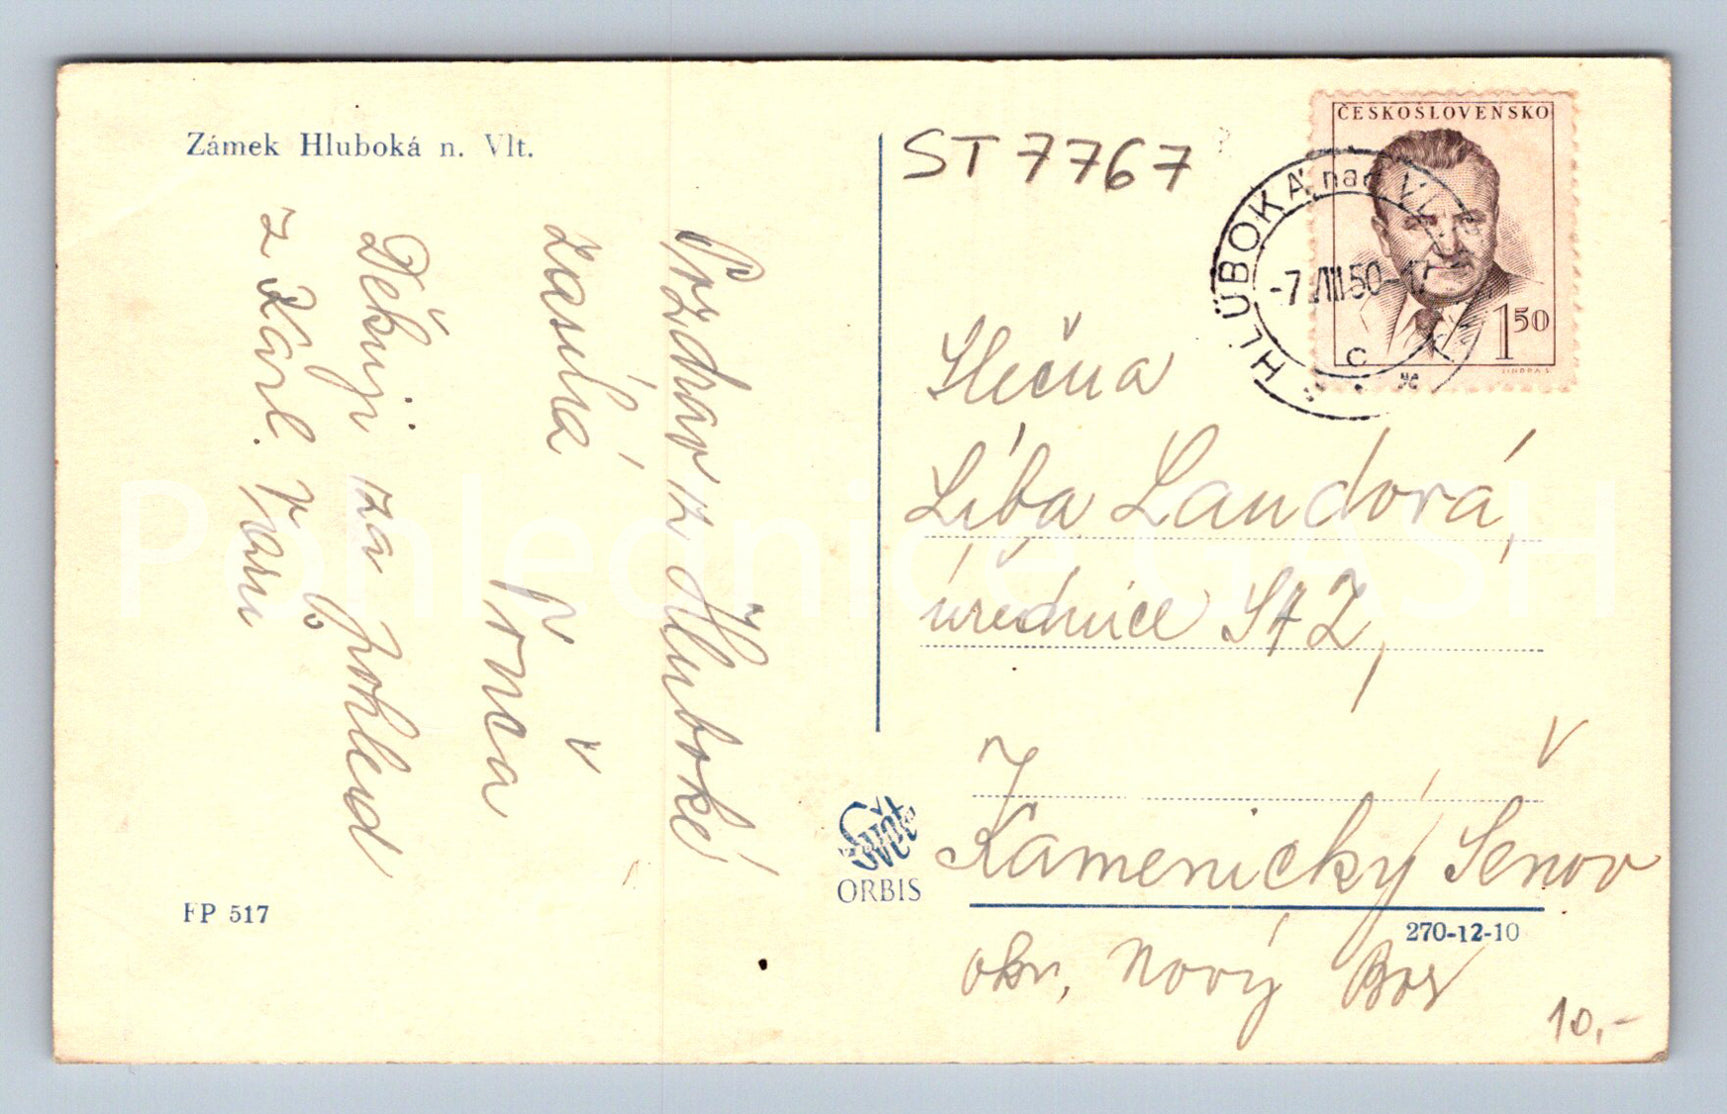 Zámek Hluboká n. Vlt.
Pozdrav z Hluboké
zasílá
Fronča
Děkuji za pohled
z Karl. Varů
FP 517
Svět
ORBIS
ST 7767
ČESKOSLOVENSKO
1 50
HLUBOKÁ nad Vl
-7.VIII.50-17
C
Slečna
Líba Landová,
úřednice StZ,
Kamenický Šenov
270-12-10
okr. Nový Bor
10,-
Pohlednice GASH